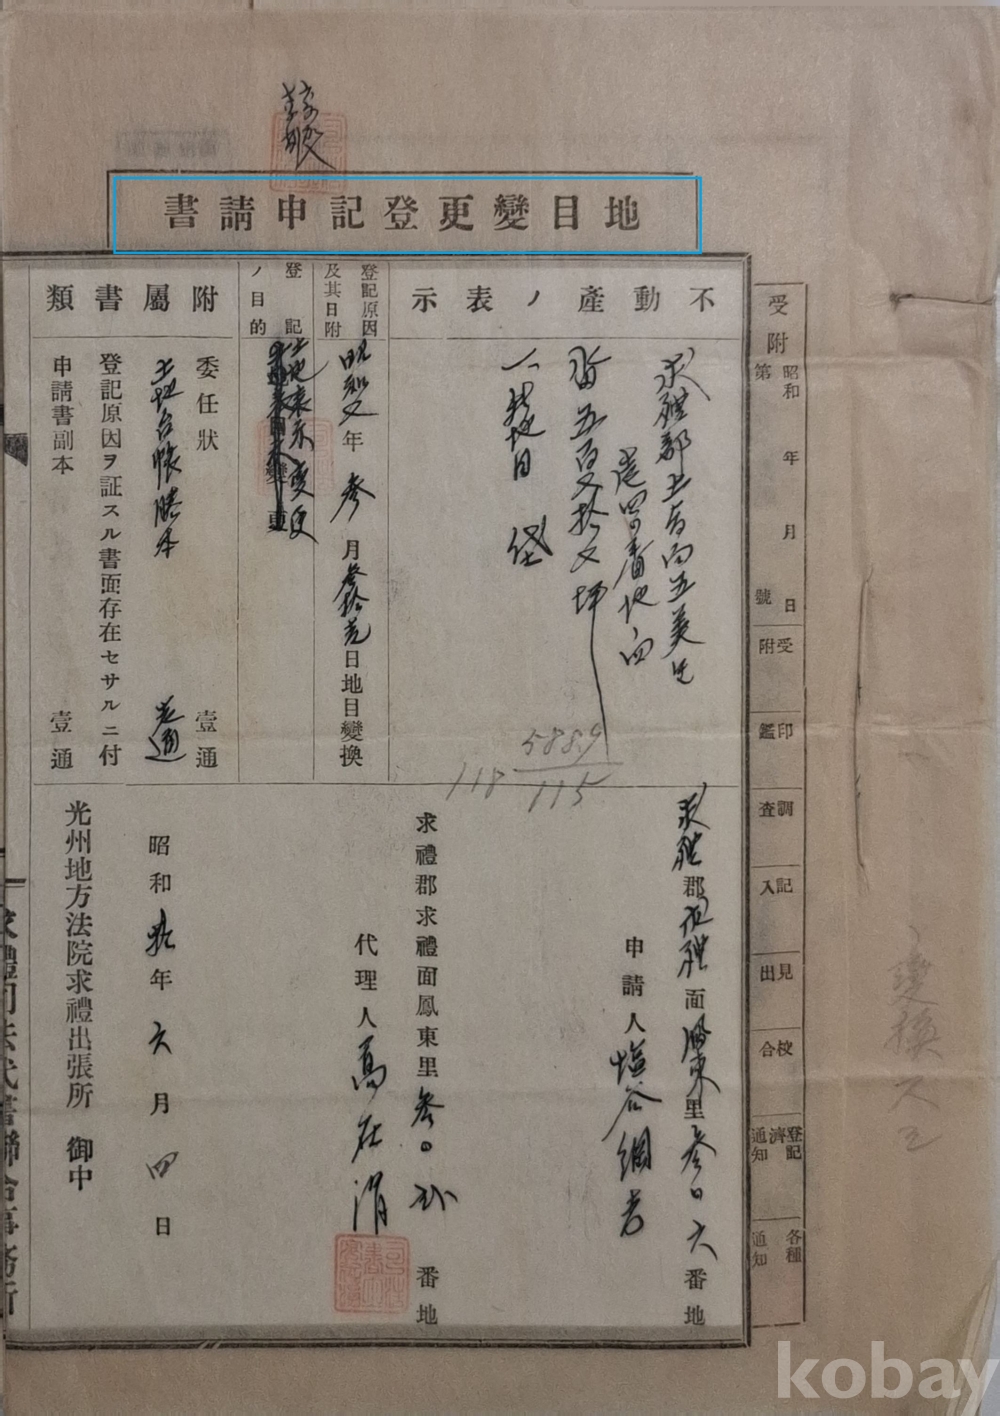 地目變更登記申請書
受附
昭和 年 月 日
第 號
受附
印鑑
調查
記入
見出
校合
登記濟通知
各種通知
不動產ノ表示
求禮郡土旨面五美里
番地
五百
一 地目 垈
5889
115
118
登記原因及其日附
昭和 年 參 月 參拾壱 日地目變換
登記ノ目的
土地表示變更
附屬書類
委任狀 壹通
土地台帳謄本 壱通
登記原因ヲ証スル書面存在セサルニ付
申請書副本 壹通
求禮郡求禮面鳳東里參〇六番地
申請人 塩谷
求禮郡求禮面鳳東里參〇 番地
代理人 高在
昭和 年 六 月 四 日
光州地方法院求禮出張所 御中
求禮司法代書聯合事務所
變換
kobay